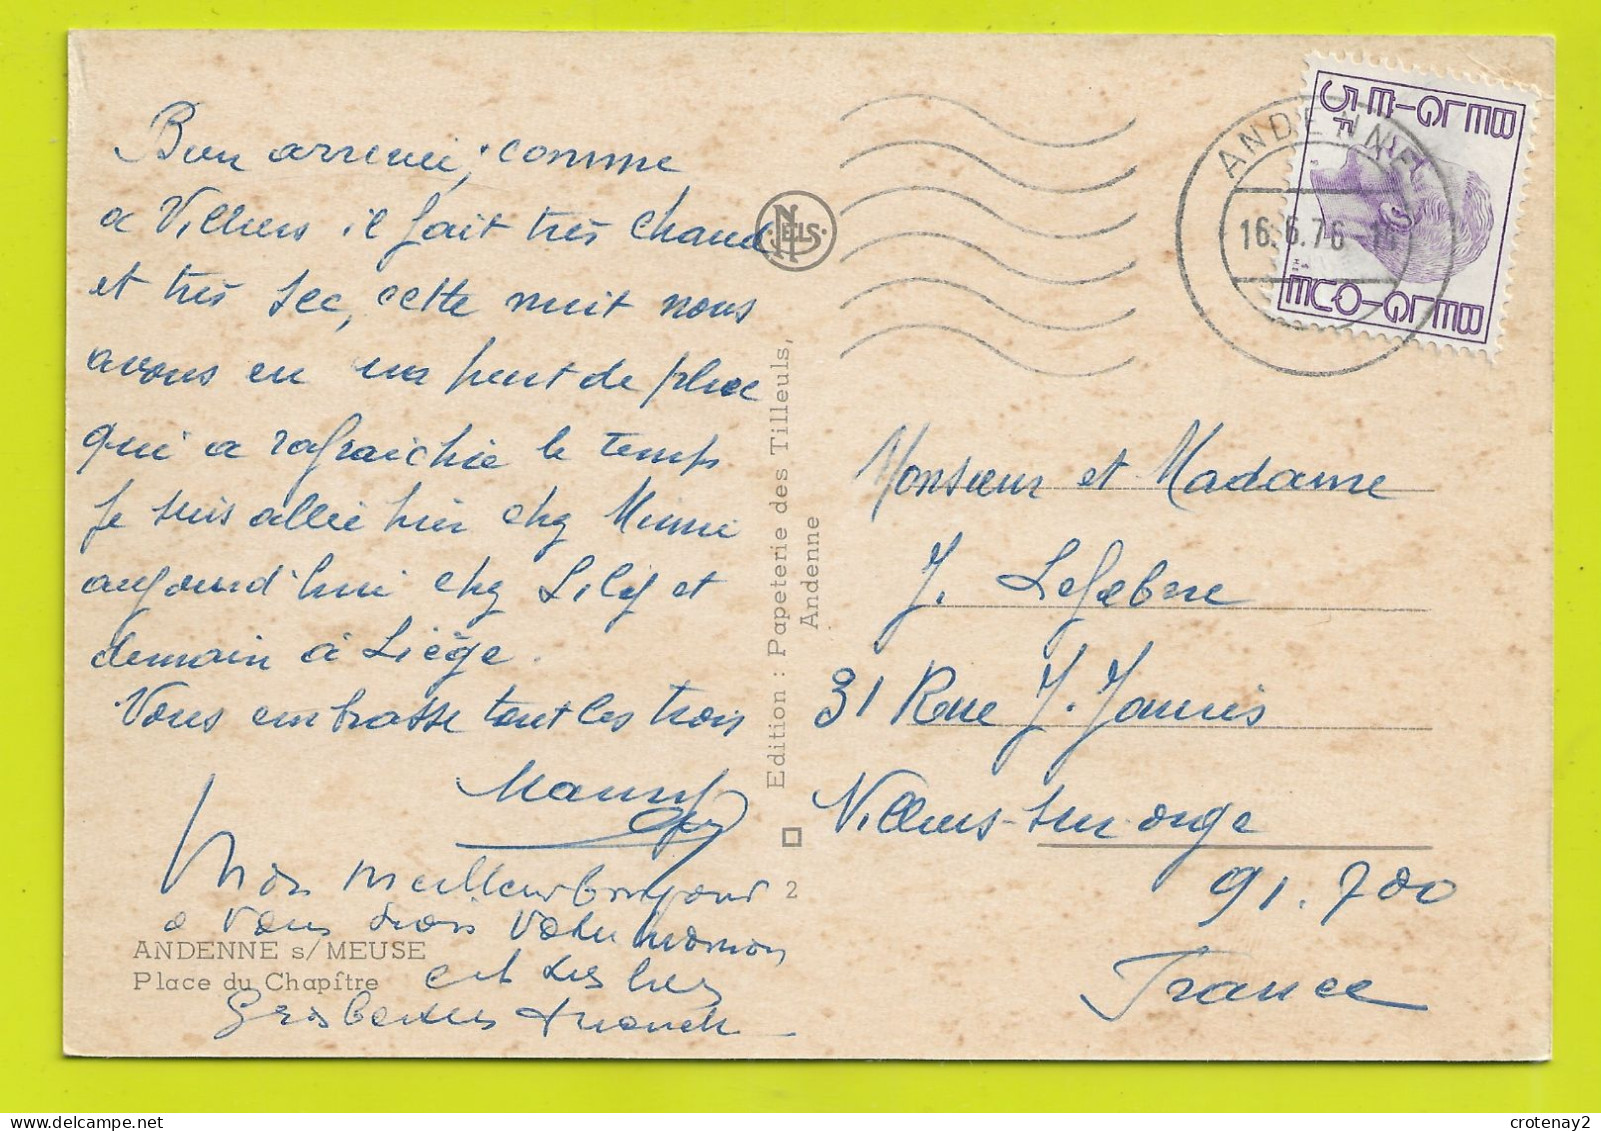 Bien arrivée, comme
a Villiers il fait très chaud
et très sec, cette nuit nous
avons eu un peut de pluie
qui a rafraichie le temps
Je suis allée hier chez Mimi
aujourd'hui chez Lily et
demain à Liège.
Vous embrasse tout les trois
Mamy
Mon meilleur bonjour
a vous trois votre maman
est très
Gros
ANDENNE s/MEUSE
Place du Chapître
NELS
Edition : Papeterie des Tilleuls,
Andenne
2
BELGIE 5F
BELGIQUE
ANDENNE
16.6.76
Monsieur et Madame
J. Lefebvre
31 Rue J. Jaurès
Villiers-sur-orge
91.700
France
crotenay2